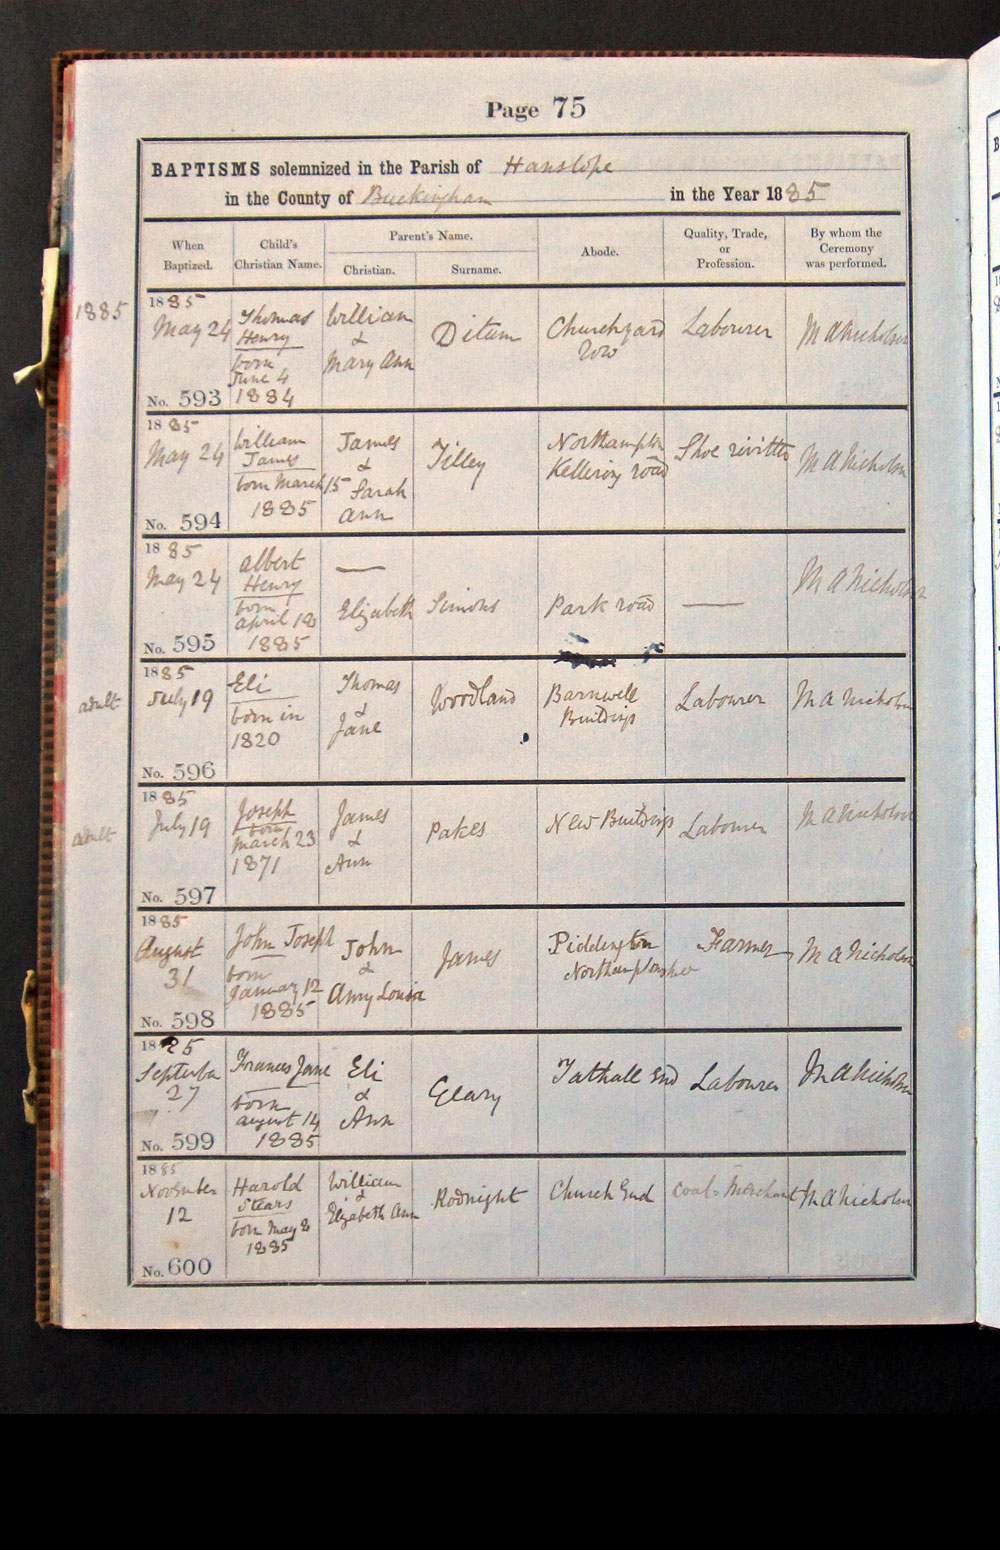 Page 75
BAPTISMS solemnized in the Parish of Hanslope
in the County of Buckingham in the Year 1885
When Baptized.
Child's Christian Name.
Parent's Name.
Christian.
Surname.
Abode.
Quality, Trade, or Profession.
By whom the Ceremony was performed.
1885
1885
May 24
No. 593
Thomas
Henry
born
June 4
1884
William
&
Mary Ann
Ditum
Churchyard
row
Labourer
M A Nicholson
1885
May 24
No. 594
William
James
born March 15
1885
James
&
Sarah
Ann
Tilley
Northampton
road
Shoe rivitter
M A Nicholson
1885
May 24
No. 595
Albert
Henry
born
April 18
1885
—
Elizabeth
Simons
Park road
—
M A Nicholson
adult
1885
July 19
No. 596
Eli
born in
1820
Thomas
&
Jane
Woodland
Barnwell
Buildings
Labourer
M A Nicholson
adult
1885
July 19
No. 597
Joseph
born
March 23
1871
James
&
Ann
Pakes
New Buildings
Labourer
M A Nicholson
1885
August
31
No. 598
John Joseph
born
January 12
1885
John
&
Amy Louisa
James
Piddington
Northamptonshire
Farmer
M A Nicholson
1885
September
27
No. 599
Frances Jane
born
August 14
1885
Eli
&
Ann
Geary
Tathall End
Labourer
M A Nicholson
1885
November
12
No. 600
Harold
Stears
born May 8
1885
William
&
Elizabeth Ann
Rodnight
Church End
Coal-Merchant
M A Nicholson